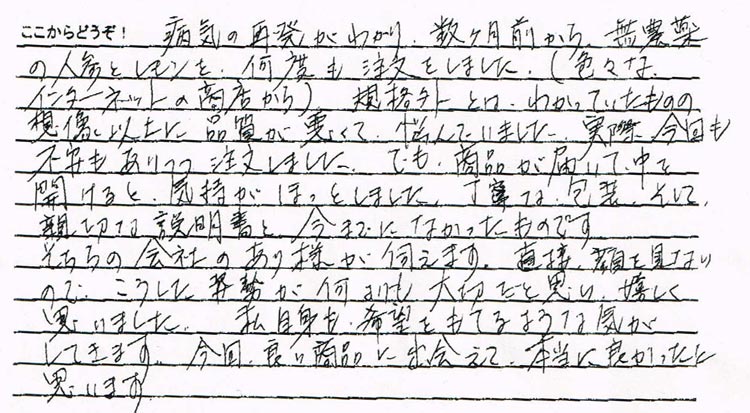 ここからどうぞ！ 病気の再発がわかり、数ヶ月前から、無農薬
の人参とレモンを、何度も注文をしました。(色々な
インターネットの商店から) 規格外とは、わかっていたものの
想像以上に品質が悪くて、悩んでいました。実際、今回も
不安もありつつ注文しました。でも、商品が届いて、中を
開けると、気持がほっとしました。丁寧な、包装、そして、
親切な説明書と、今までになかったものです
そちらの会社のあり様が伺えます。直接、顔を見ない
ので、こうした姿勢が何よりも大切だと思い、嬉しく
思いました。 私自身も、希望をもてるような気が
してきます。今回、良い商品に出会えて、本当に良かったと
思います